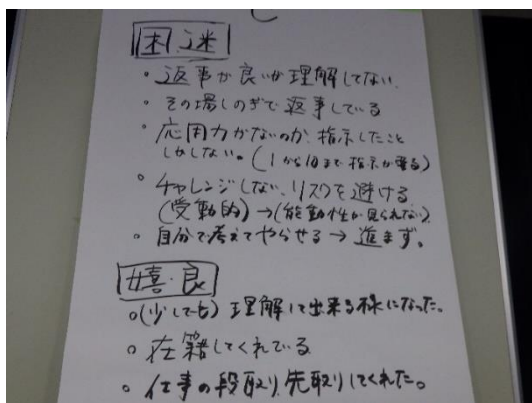 困・迷
・返事が良いが理解してない
・その場しのぎで返事している
・応用力がないのか、指示したこと
しかしない。(1から10まで指示が要る)
・チャレンジしない、リスクを避ける
(受動的)→(能動性が見られない)
・自分で考えてやらせる→進まず。
嬉・良
○(少しでも)理解して出来る様になった。
○在籍してくれている
・仕事の段取り、先取りしてくれた。